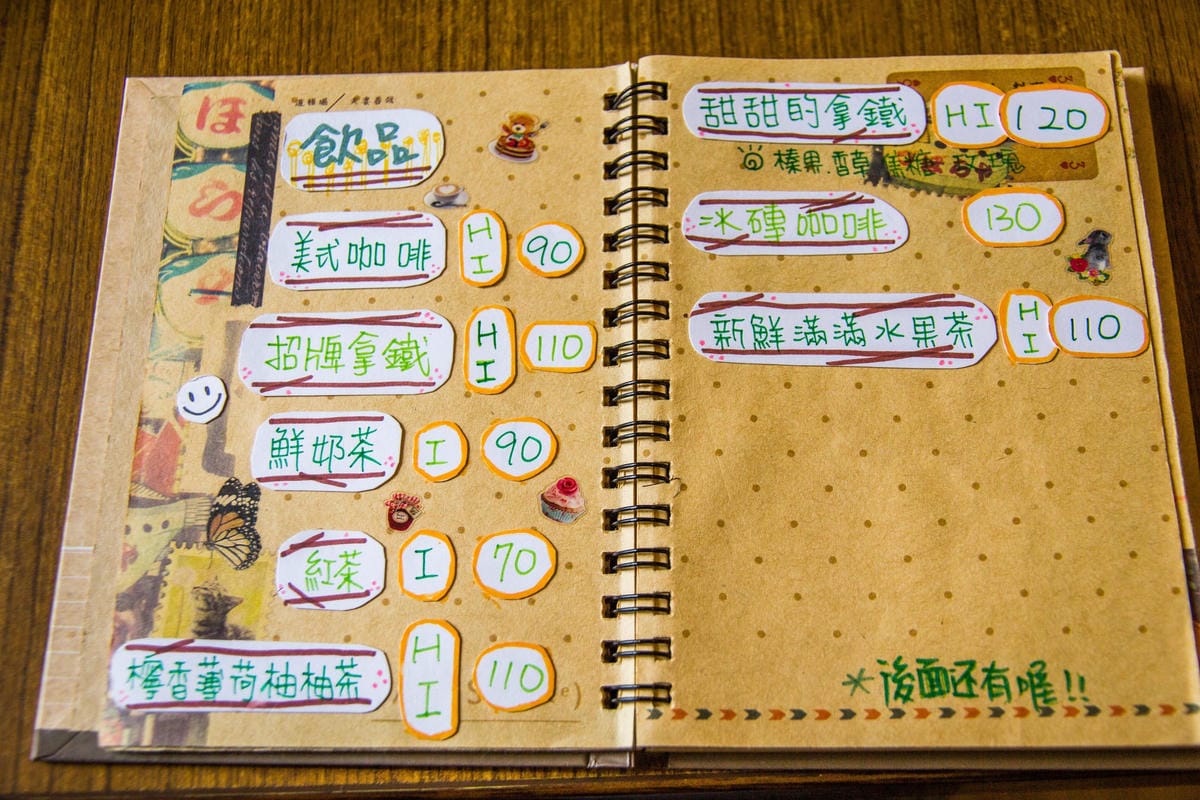 飲品
美式咖啡 H I 90
招牌拿鐵 H I 110
鮮奶茶 I 90
紅茶 I 70
檸香薄荷柚柚茶 H I 110
甜甜的拿鐵 HI 120
榛果.香草.焦糖.玫瑰
冰磚咖啡 130
新鮮滿滿水果茶 H I 110
*後面还有喔!!
ほ